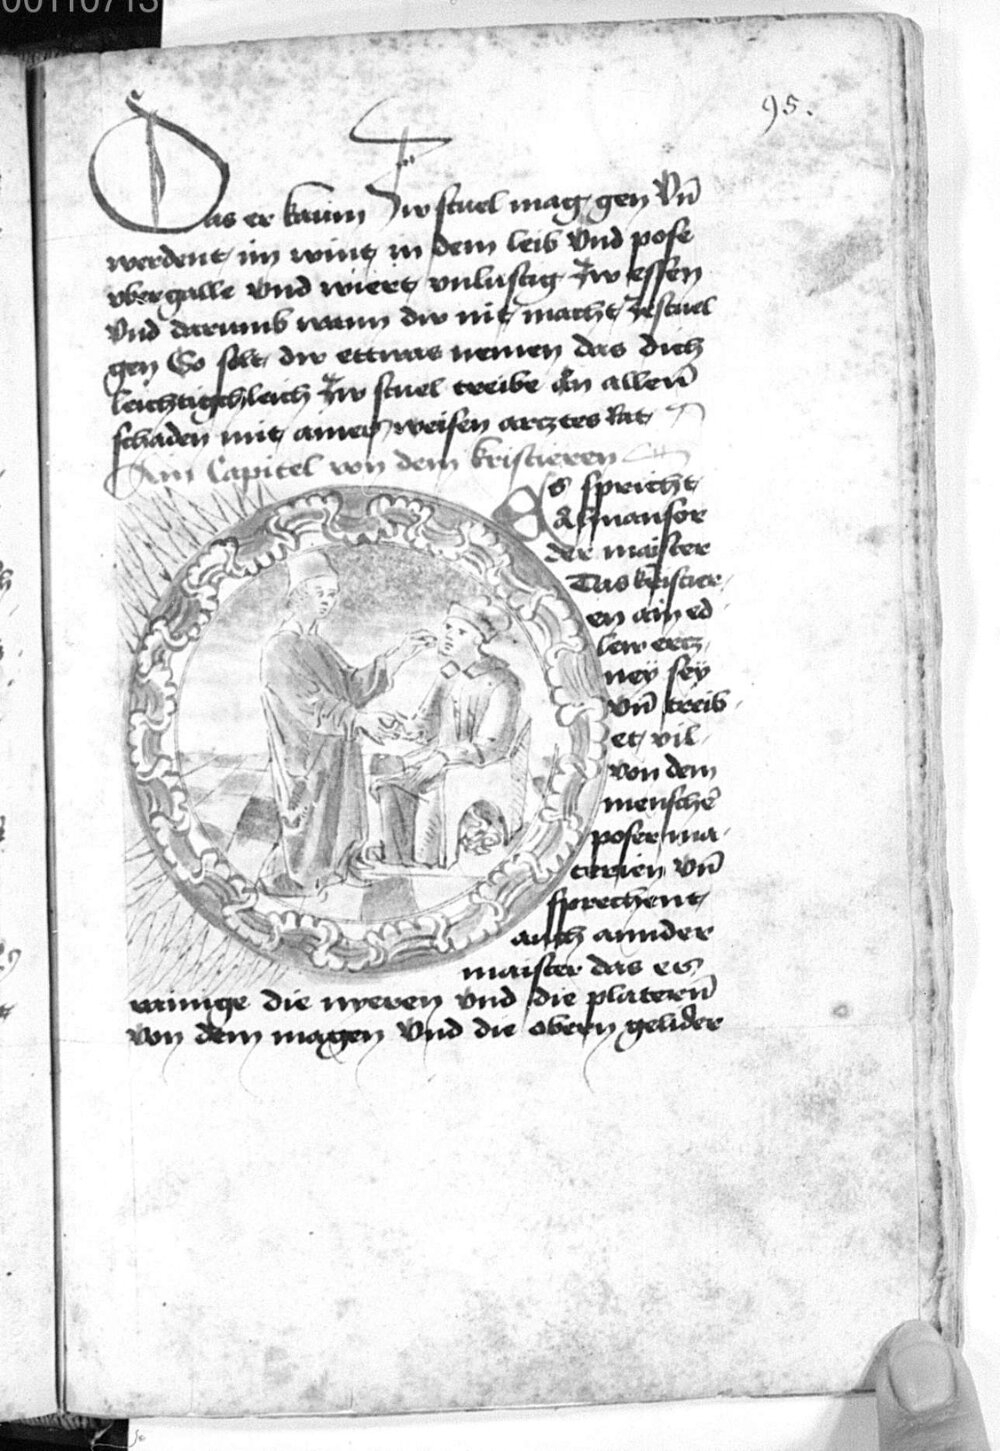 00110713
95.
Das er kaum Zw stuel mag gen Vn̄
werdent im wint in dem leib Vnd pose
vbergalle vnd wiert vnlustig Zw essen
Vnd darumb wann dw nit macht Ze stuel
gen So solt dw ettwas nemen das dich
leichtigchleich Zw stuel treibe An allen̄
schaden mit ainer weisen arcztes Rat
Ain Capitel von dem kristieren
Es spricht
Almansor
der maister
Das kristier
en ain ed
lew ercz
neÿ seÿ
Vn̄ treib
et vil
von dem
menschē
poser ma
terien Vn̄
sprechent
auch annder
maister das es
rainige die nyeren vnd die platern̄
von dem magen Vnd die obern gelider